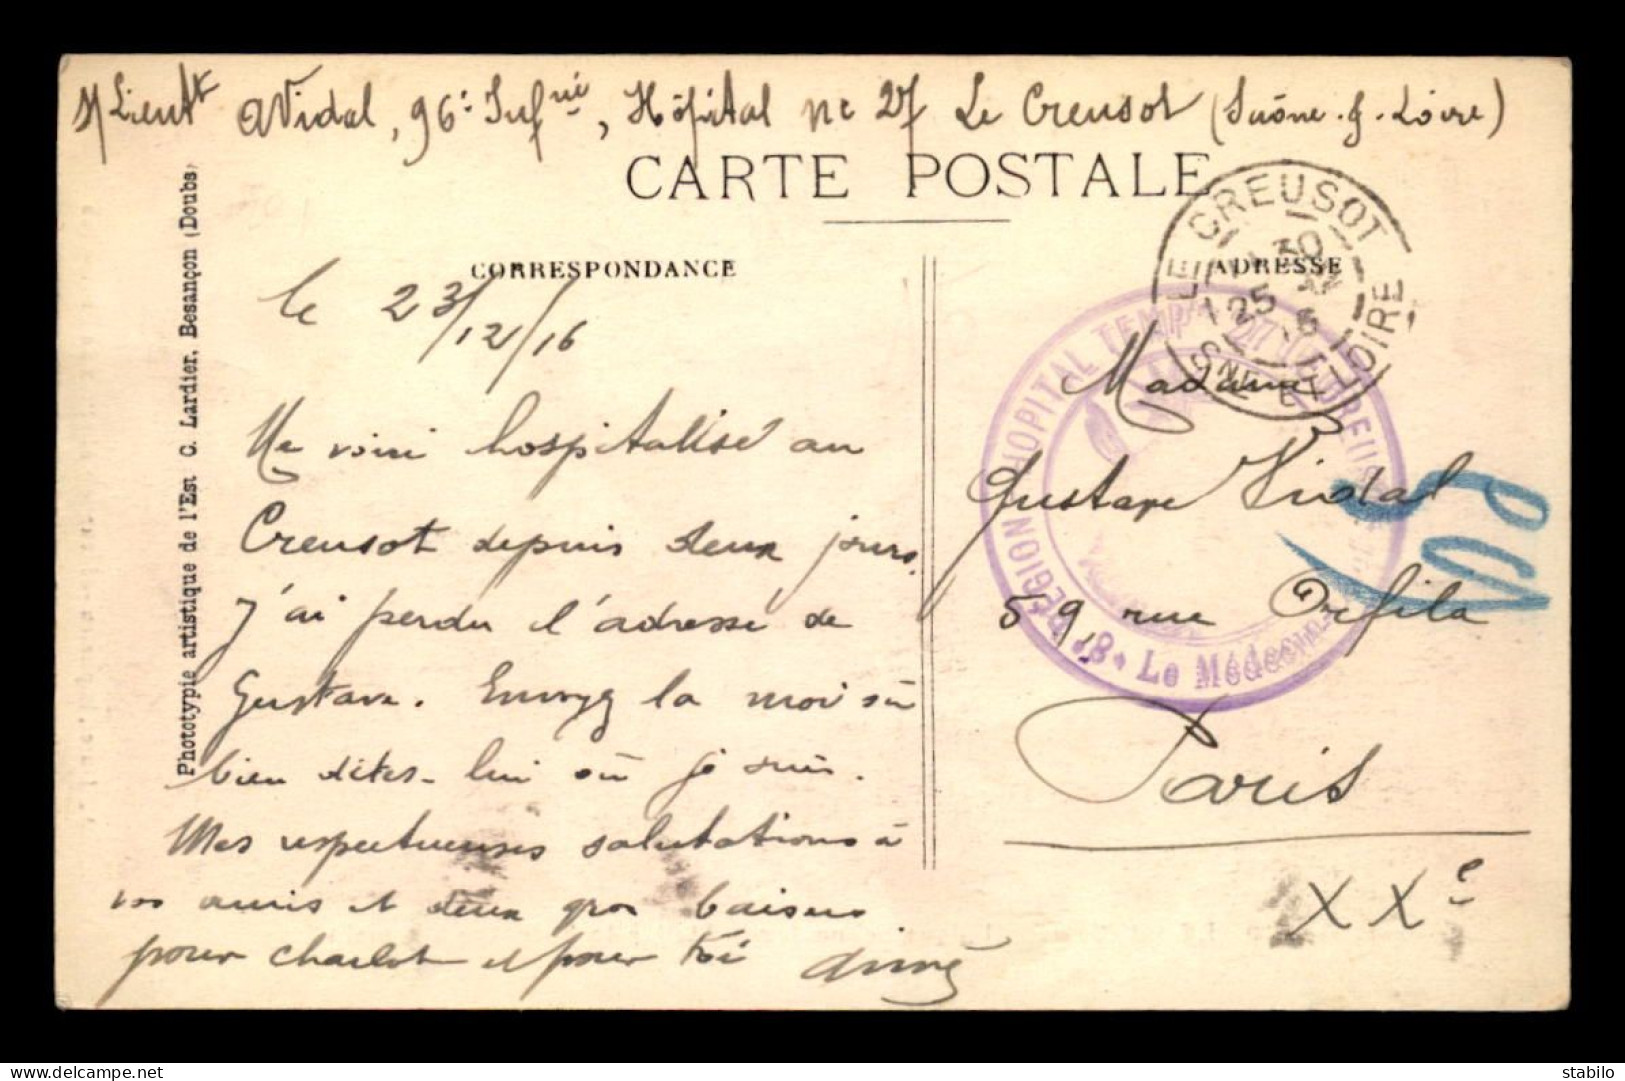 S/Lieutt A Vidal, 96e Infrie, Hôpital nc 27 Le Creusot (Saône-&-Loire)
CARTE POSTALE
CORRESPONDANCE
ADRESSE
LE CREUSOT
30
25
SNE ET LOIRE
HOPITAL TEMP
REGION
8e
Le Médecin
le 23/12/16
Me voici hospitalisé au
Creusot depuis deux jours.
J'ai perdu l'adresse de
Gustave. Envoyez la moi ou
bien dites-lui où je suis.
Mes respectueuses salutations à
vos amis et deux gros baisers
pour Charlot et pour toi Aimé
Madame
Gustave Vidal
59, rue Orfila
Paris
XXe
Phototypie artistique de l'Est C. Lardier, Besançon (Doubs)
stabilo